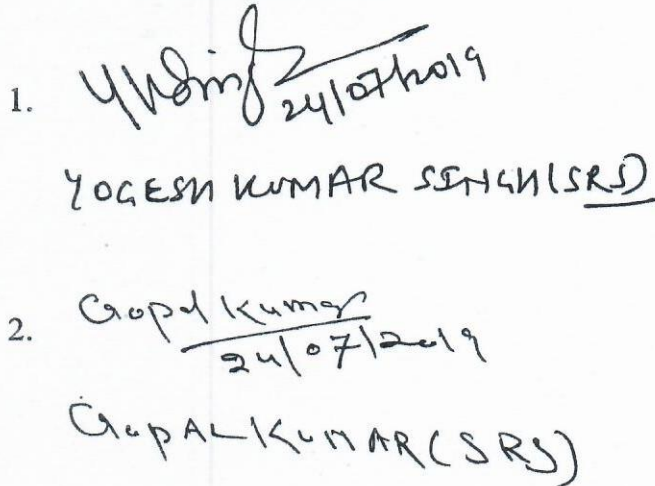 1. YKSingh
24/07/2019
YOGESH KUMAR SINGH (SRS)
2. Gopal Kumar
24/07/2019
GOPAL KUMAR (SRS)